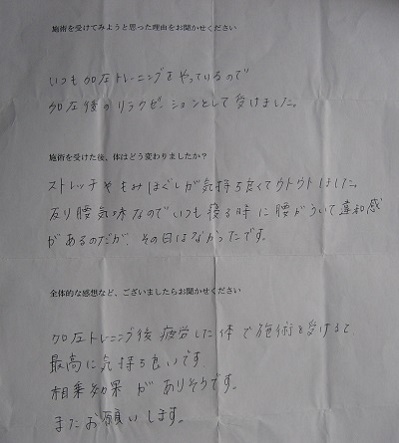 施術を受けてみようと思った理由をお聞かせください
いつも加圧トレーニングをやっているので
加圧後のリラクゼーションとして受けました。
施術を受けた後、体はどう変わりましたか？
ストレッチやもみほぐしが気持ち良くてウトウトしました。
反り腰気味なのでいつも寝る時に腰がういて違和感
があるのだが、その日はなかったです。
全体的な感想など、ございましたらお聞かせください
加圧トレーニング後疲労した体で施術を受けると
最高に気持ち良いです。
相乗効果がありそうです。
またお願いします。